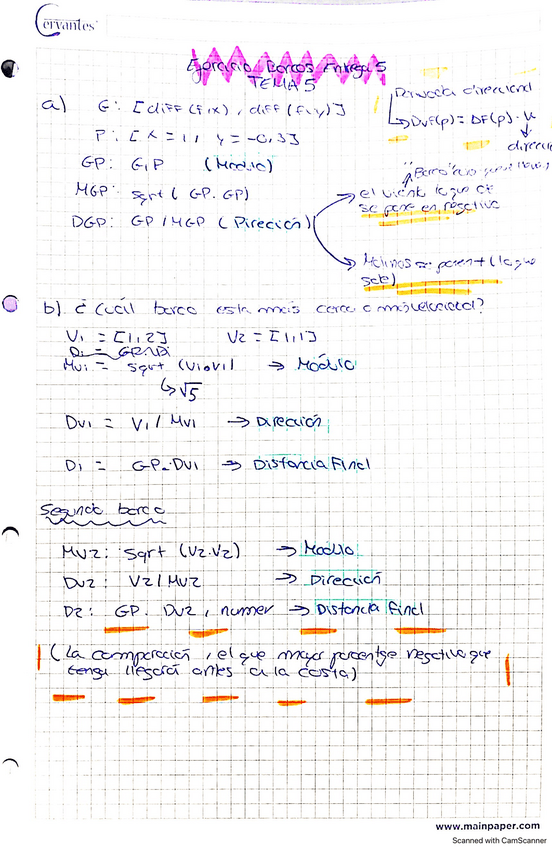 Cervantes
Ejercicio Barcos Entrega 5
TEMA 5
a) G: [diff(f,x), diff(f,y)]
P: [x=1, y=-0,3]
GP: G,P (Modulo)
MGP: sqrt (GP.GP)
DGP: GP/MGP (Dirección)
Derivada direccional
DvF(p) = ΔF(p) · u
direcció
"Barco"
el viento lo que de
se pone en negativo
(lo que
sale)
b) ¿Cuál barco esta mais cerca a
V1 = [1,2] V2 = [1,1]
D1 = GP.VDi
Mv1 = sqrt (V1.V1) → Módulo
√5
Dv1 = V1/Mv1 → Dirección
D1 = GP.Dv1 → Distancia Final
Segundo barco
Mv2: sqrt (V2.V2) → Modulo
Dv2: V2/Mv2 → Dirección
D2: GP. Dv2, numer → Distancia final
(La comparación, el que mayor porcentge negativo que
tenga llegará antes a la costa)
www.mainpaper.com
Scanned with CamScanner